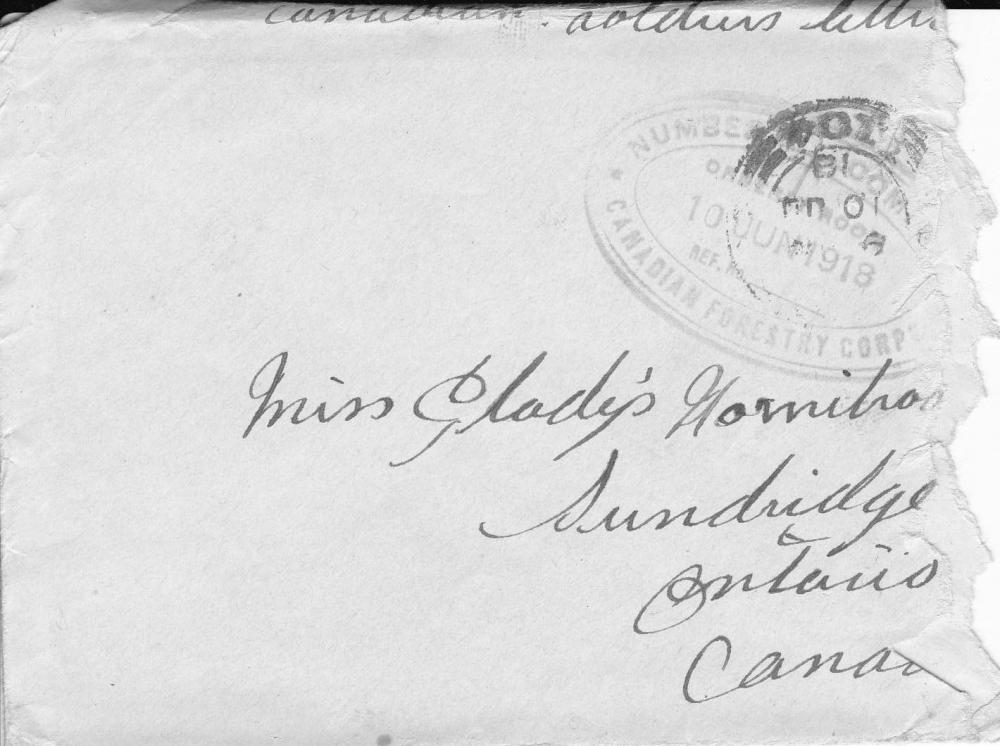 canadian soldiers lette
NUMBE
COM
ROOM
10 JUN 1918
REF. No.
CANADIAN FORESTRY CORPS
18
JU 01
Miss Gladys Hornibroo
Sundridge
Ontario
Canad